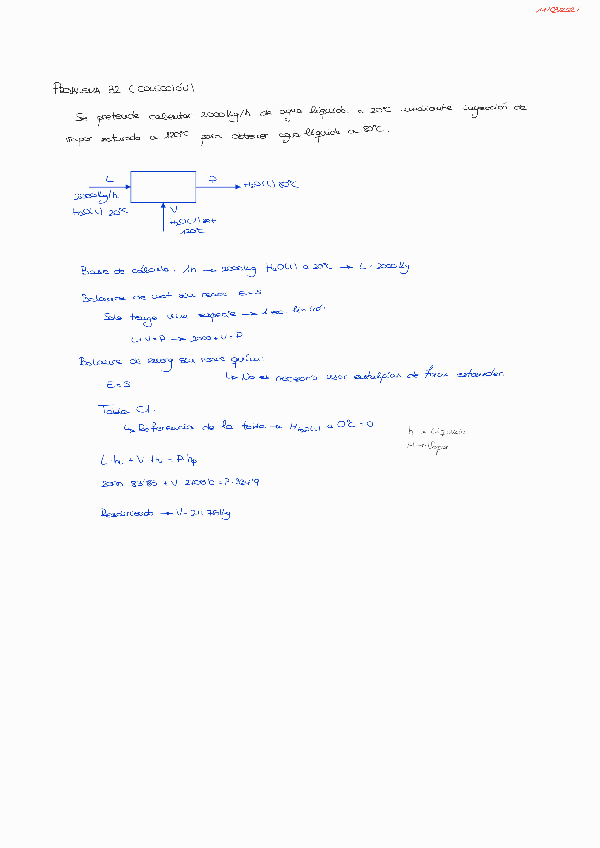 11/03/2021
PROBLEMA 32 (COLECCIÓN)
Se pretende calentar 2000kg/h de agua líquida a 20ºC mediante inyección de
vapor saturado a 120ºC para obtener agua líquida a 80ºC.
L P
2000kg/h H2O(L) 80ºC
H2O(L) 20ºC V
H2O(V) sat
120ºC
Base de cálculo: 1h → 2000kg H2O(L) a 20ºC → L = 2000kg
Balance de mat sin reacc E=S
Solo tengo una especie → 1 ec.
L+V=P → 2000+V=P
Balance de energ sin reacc quím:
↳ No es necesario usar entalpías de form estándar
E=S
Tabla C1.
↳ Referencia de la tabla → H H2O(L) a 0ºC = 0
h → Líquido
H → Vapor
L·hL + V·Hv = P·hp
2000· + V· = P·
Resolviendo → V=